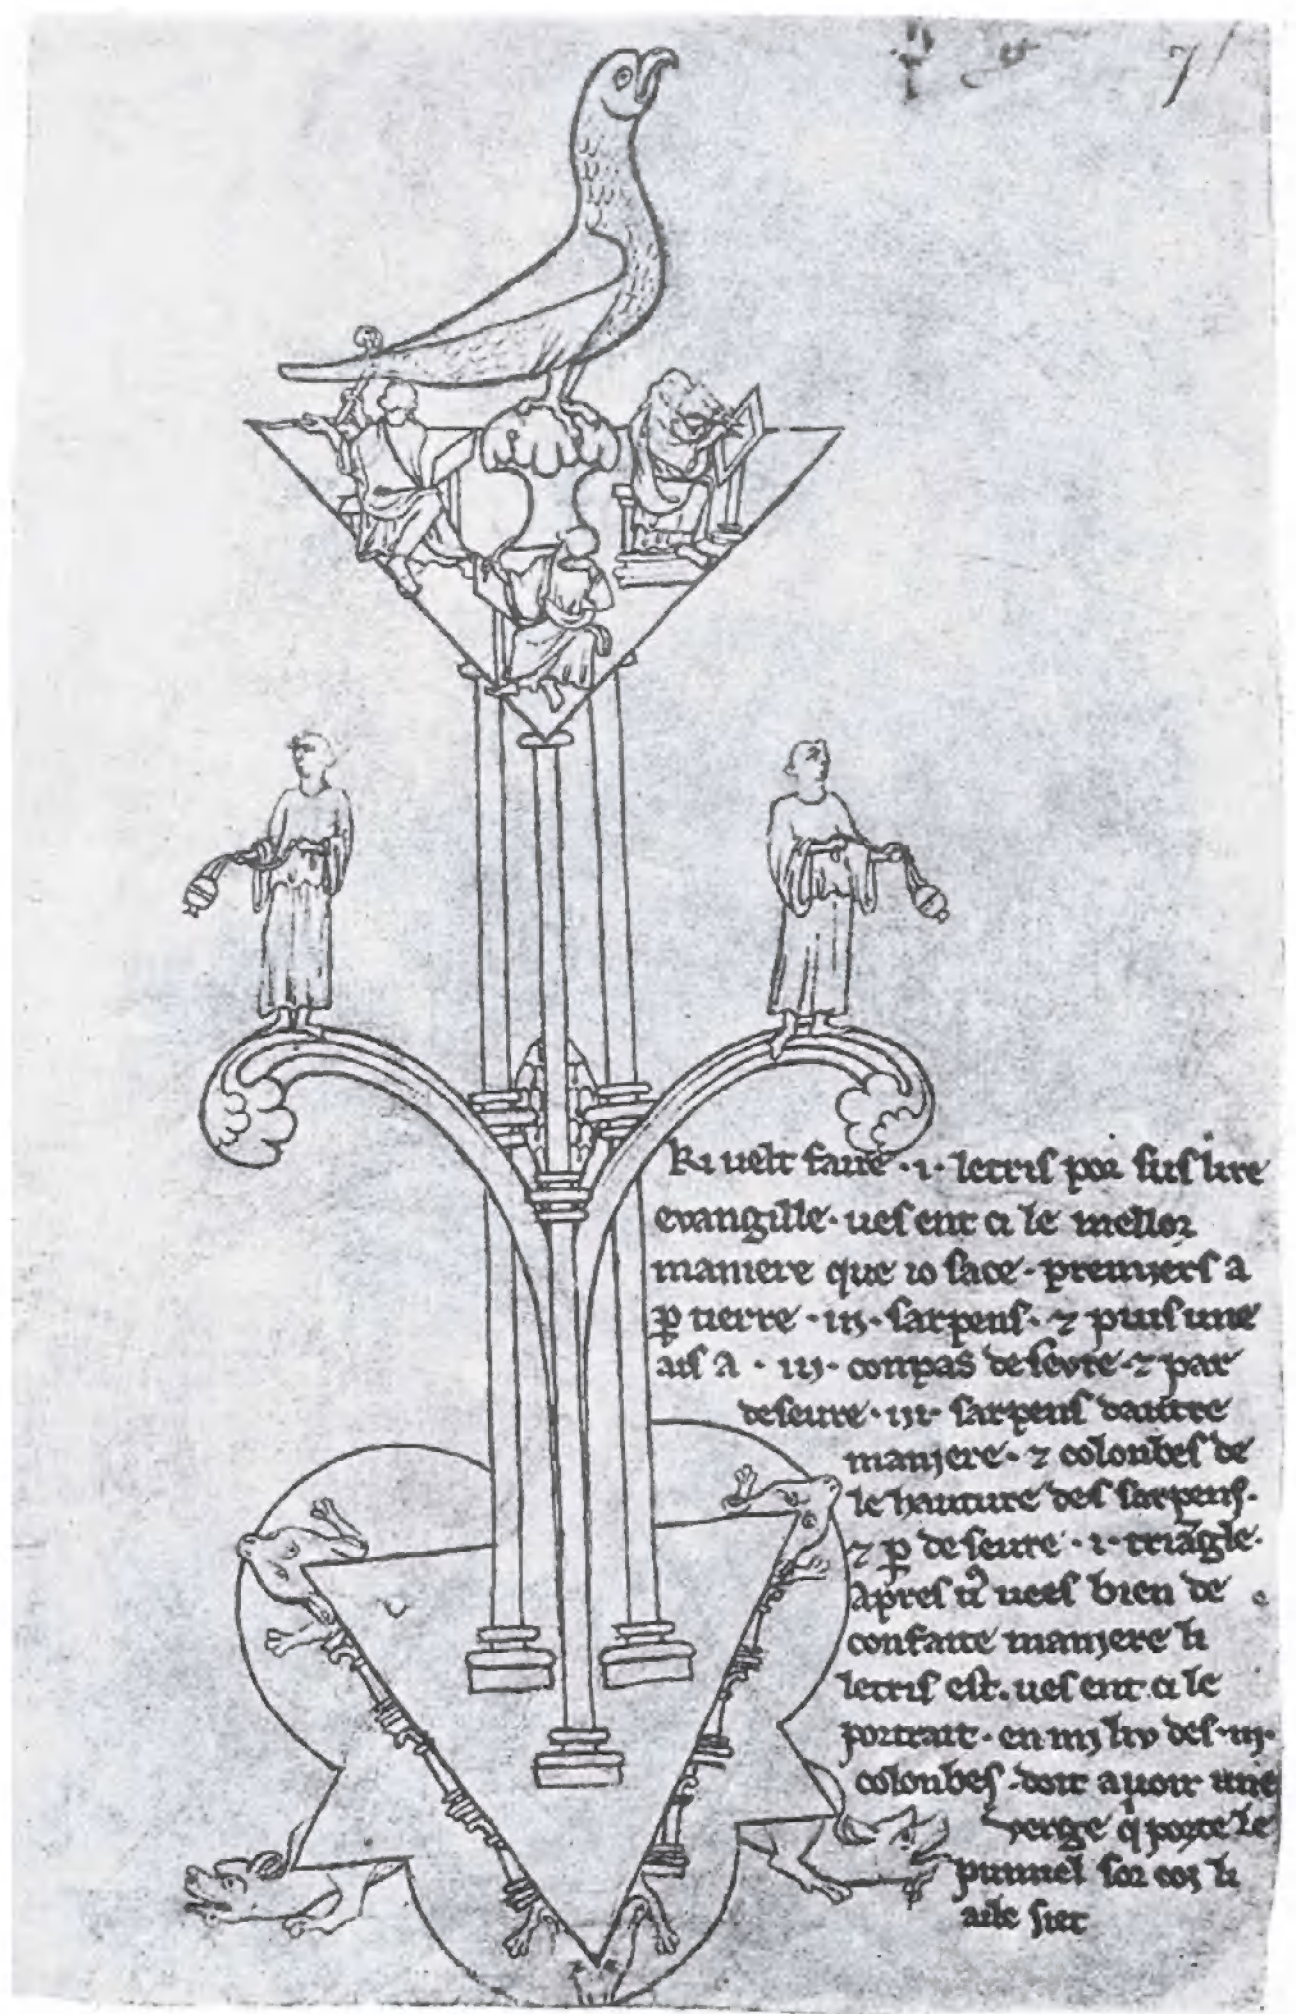 7
Ki uelt faire ·i· letris por sus lire
evangille· ues ent ci le mellor
maniere que io sace· premiers a
p̄ tierre ·iij· sarpens· ⁊ puis une
ais a ·iij· conpas deseure ⁊ par
deseure ·iij· sarpens dautre
maniere· ⁊ colonbes de
le hauture des sarpens·
⁊ p̄ deseure ·i· triāgle·
Apres uees bien de
confaite maniere li
letris est. ues ent ci le
portrait· en mi liv des ·iij·
colonbes· doit auoir une
verge q̇ porte le
pumiel sor coi li
aile siet